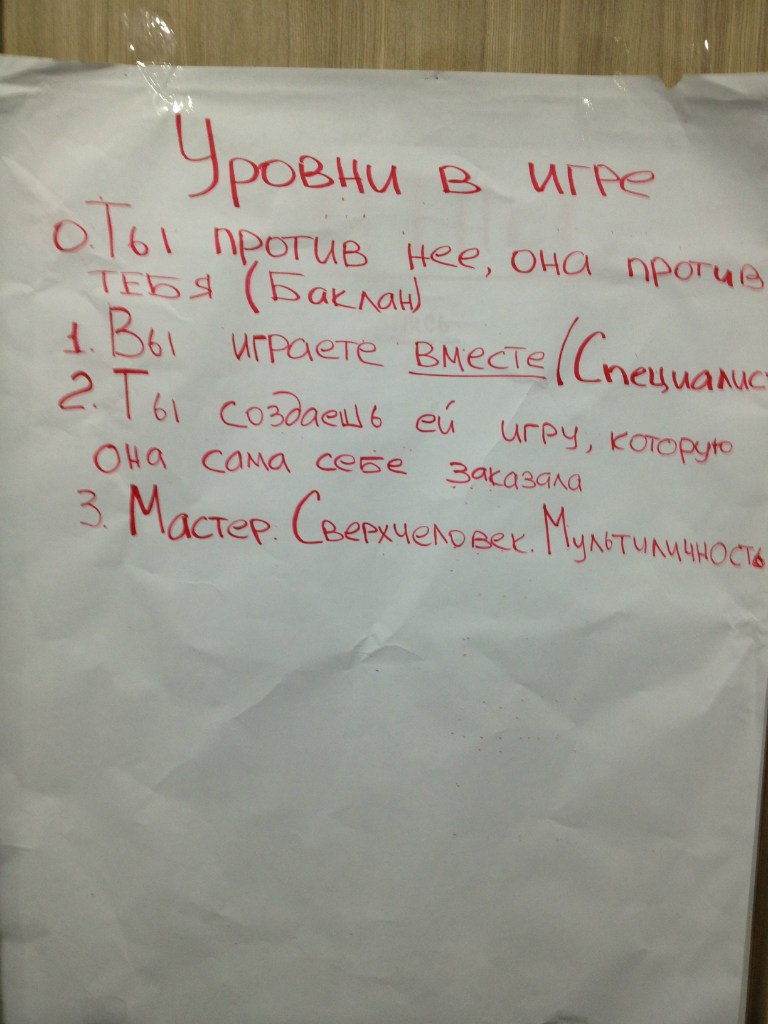 Уровни в игре
0. Ты против нее, она против
тебя (Баклан)
1. Вы играете вместе (Специалис
2. Ты создаешь ей игру, которую
она сама себе заказала
3. Мастер. Сверхчеловек. Мультиличность